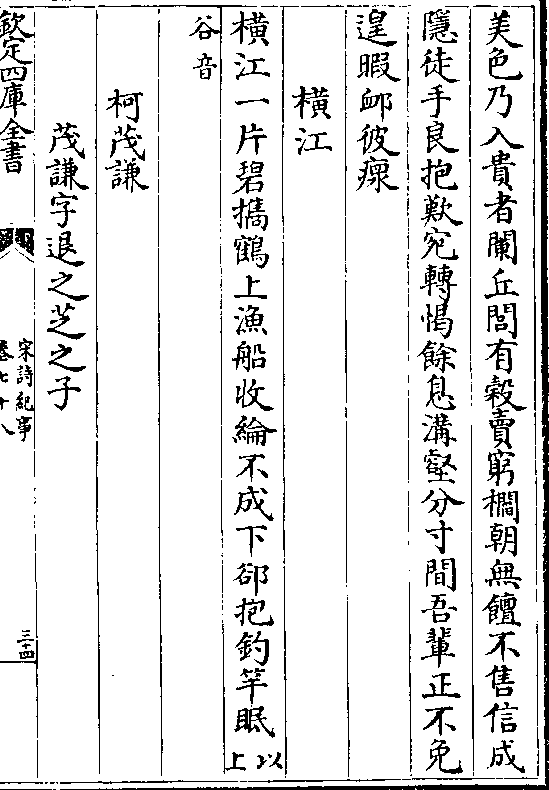 美色乃入貴者闌丘閭有穀賣窮櫩朝無饘不售信成
隱徒手良抱歎宛轉惕餘息溝壑分寸間吾輩正不免
遑暇卹彼瘝
橫江
橫江一片碧㩦鶴上漁船收綸不成下郤抱釣竿眠以上
谷音
柯茂謙
茂謙字退之芝之子
欽定四庫全書
宋詩紀事
卷七十八
三十四